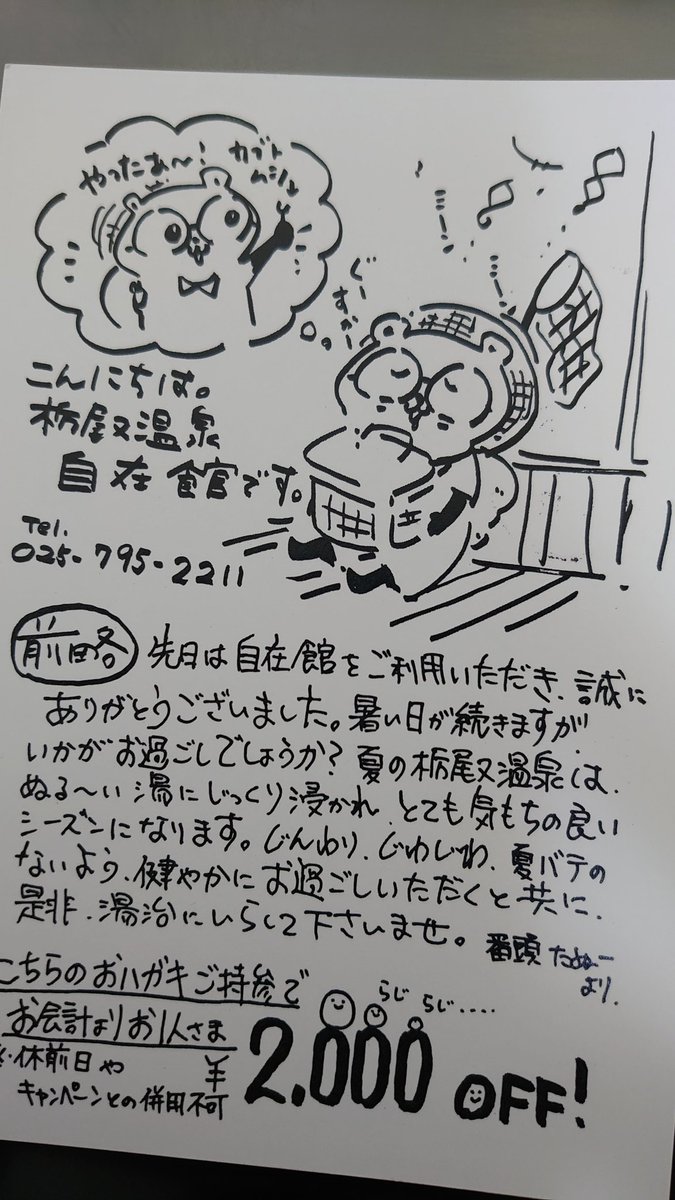 やったぁ〜！
カブト
ムシよ
ぐー
すかー
こんにちは。
栃尾又温泉
自在館です。
Tel.
025-795-2211
前略 先日は自在館をご利用いただき、誠に
ありがとうございました。暑い日が続きますが、
いかがお過ごしでしょうか？夏の栃尾又温泉は、
ぬる〜い湯にじっくり浸かれ、とても気もちの良い
シーズンになります。じんわり、じわじわ、夏バテの
ないよう、健やかにお過ごしいただくと共に、
是非、湯治にいらして下さいませ。
番頭 たぬー
より。
こちらのおハガキご持参で
お会計よりお1人さま
らじ らじ‥‥
¥2.000 OFF!
※休前日や
キャンペーンとの併用不可